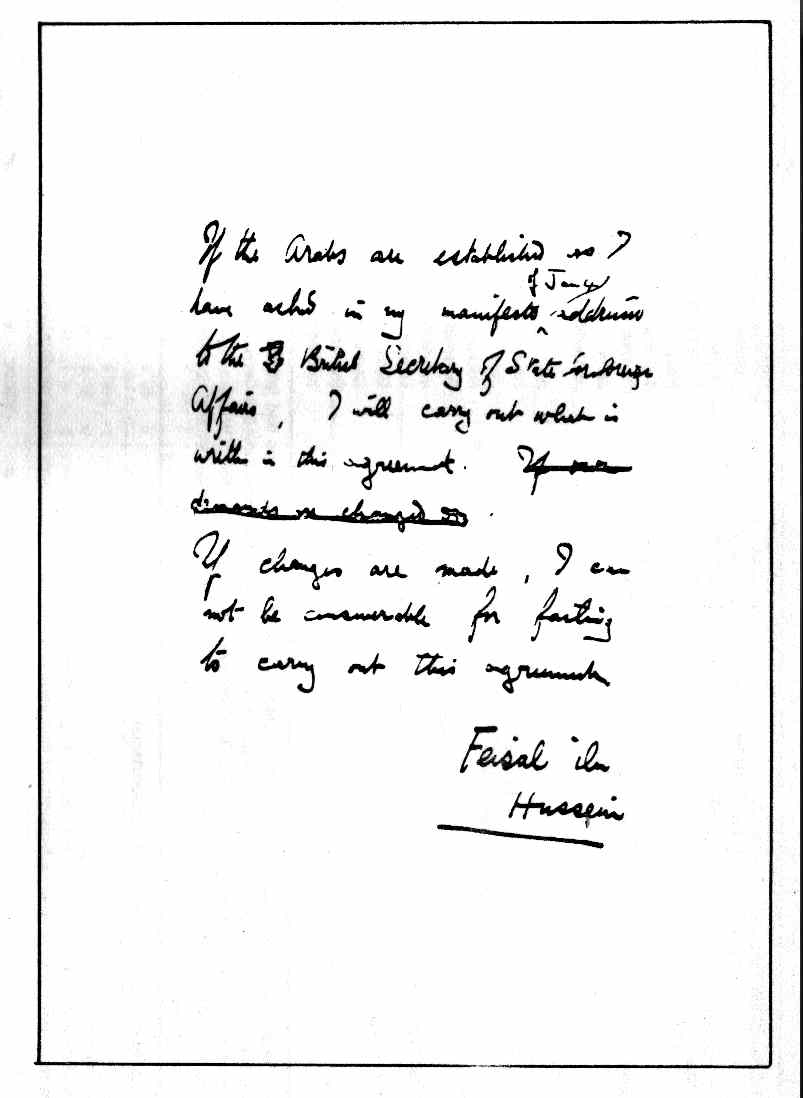 If the Arabs are established as I
of Jan 4
have asked in my manifesto addressed
to the British Secretary of State for Foreign
Affairs, I will carry out what is
written in this agreement. If
demands changed
If changes are made, I can
not be answerable for failing
to carry out this agreement
Feisal ibn
Hussein